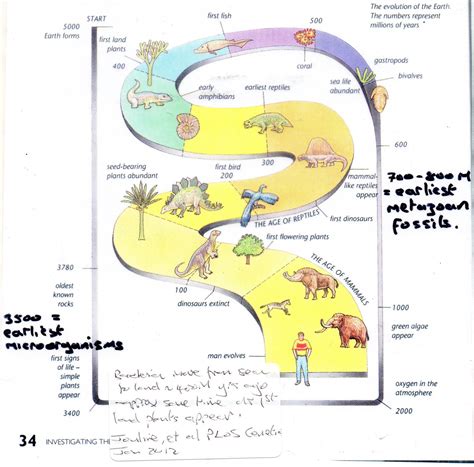 START
5000
Earth forms
The evolution of the Earth.
The numbers represent
millions of years
first fish
500
first land
plants
400
coral
gastropods
bivalves
sea life
abundant
early
amphibians
earliest reptiles
600
seed-bearing
plants abundant
first bird
200
300
mammal-
like reptiles
appear
700-800 M
= earliest
metazoan
fossils.
first dinosaurs
THE AGE OF REPTILES
first flowering plants
3780
oldest
known
rocks
100
dinosaurs extinct
THE AGE OF MAMMALS
3500 =
earliest
microorganisms
1000
green algae
appear
first signs
of life –
simple
plants
appear
man evolves
oxygen in the
atmosphere
3400
2000
move from
to land
same time as 1st
land plants appear.
et al PLoS
Jan 2012
34 INVESTIGATING TH